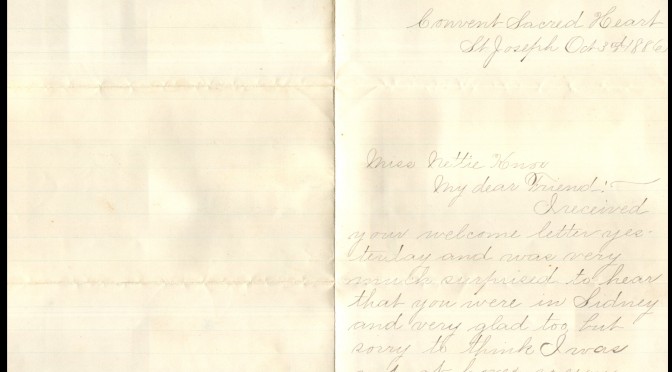 Convent Sacred Heart
St Joseph Oct 3rd 1886
Miss Nettie Knox
My dear Friend!
I received
your welcome letter yes-
terday and was very
much surprised to hear
that you were in Sidney
and very glad too, but
sorry to think I was
not at home